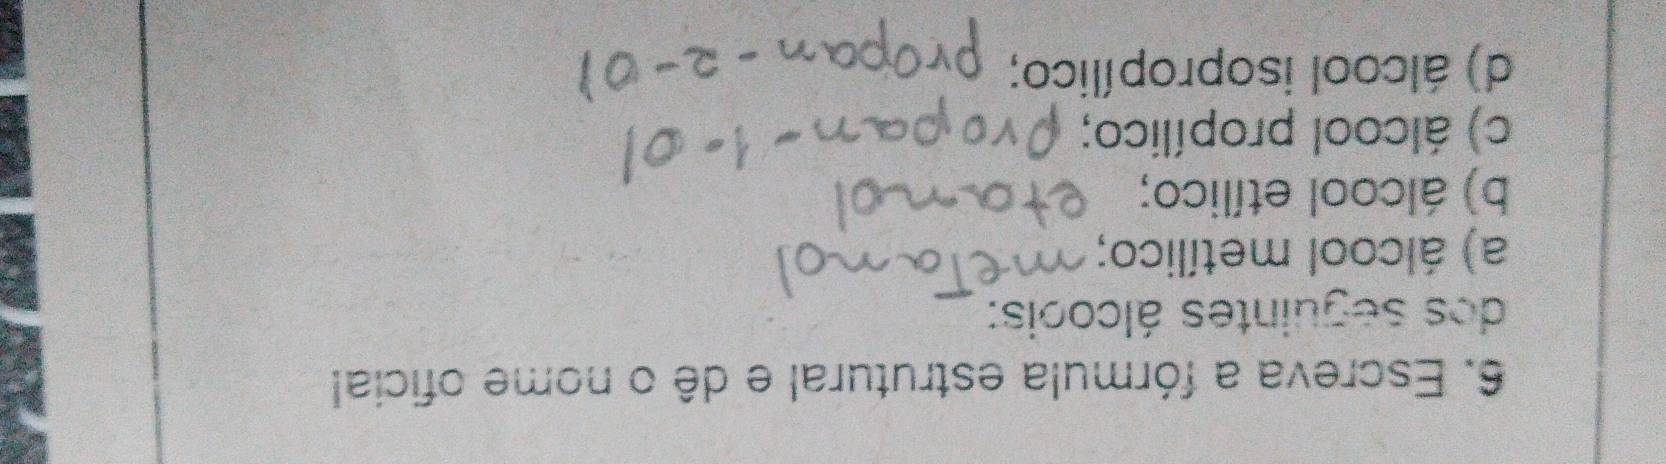 6. Escreva a fórmula estrutural e dê o nome oficial
dos seguintes álcoois:
a) álcool metílico; metanol
b) álcool etílico; etanol
c) álcool propílico; propan-1-ol
d) álcool isopropílico; propan-2-ol